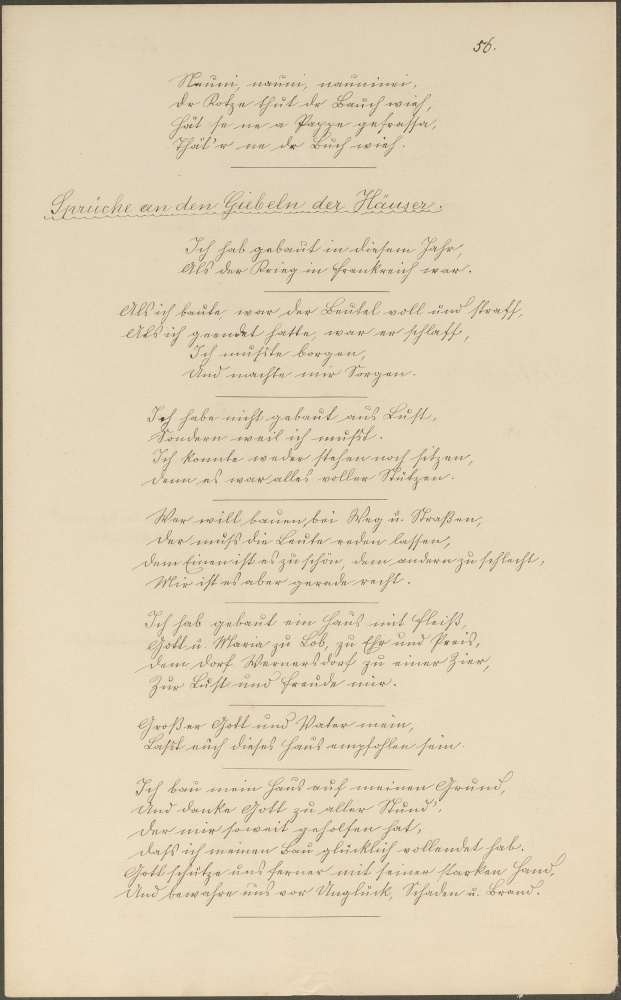 56.
Nauni, nauni, nauninei,
Dr Kotze thut dr Bauch wieh,
Hät se ne a Pappe gefrassa,
Thät'r ne dr Buch wieh.
Sprüche an den Giebeln der Häuser.
Ich hab gebaut in diesem Jahr,
Als der Krieg in Frankreich war.
Als ich baute war der Beutel voll und straff,
Als ich geendet hatte, war er schlaff,
Ich mußte borgen,
Und machte mir Sorgen.
Ich habe nicht gebaut aus Lust,
Sondern weil ich mußt.
Ich konnte weder stehen noch sitzen,
Denn es war alles voller Stützen.
Wer will bauen, bei Weg u. Straßen,
Der muß die Leute reden lassen,
Dem Einen ist es zu schön, dem andern zu schlecht,
Mir ist es aber gerade recht.
Ich hab gebaut ein Haus mit Fleiß,
Gott u. Maria zu Lob, zu Ehr und Preis,
Dem Dorf Wernersdorf zu einer Zier,
Zur Lust und Freude mir.
Großer Gott und Vater mein,
Laßt euch dieses Haus empfohlen sein.
Ich bau mein Haus auf meinen Grund,
Und danke Gott zu aller Stund',
Der mir soweit geholfen hat,
Daß ich meinen Bau glücklich vollendet hab.
Gott schütze uns ferner mit seiner starken Hand,
Und bewahre uns vor Unglück, Schaden u. Brand.